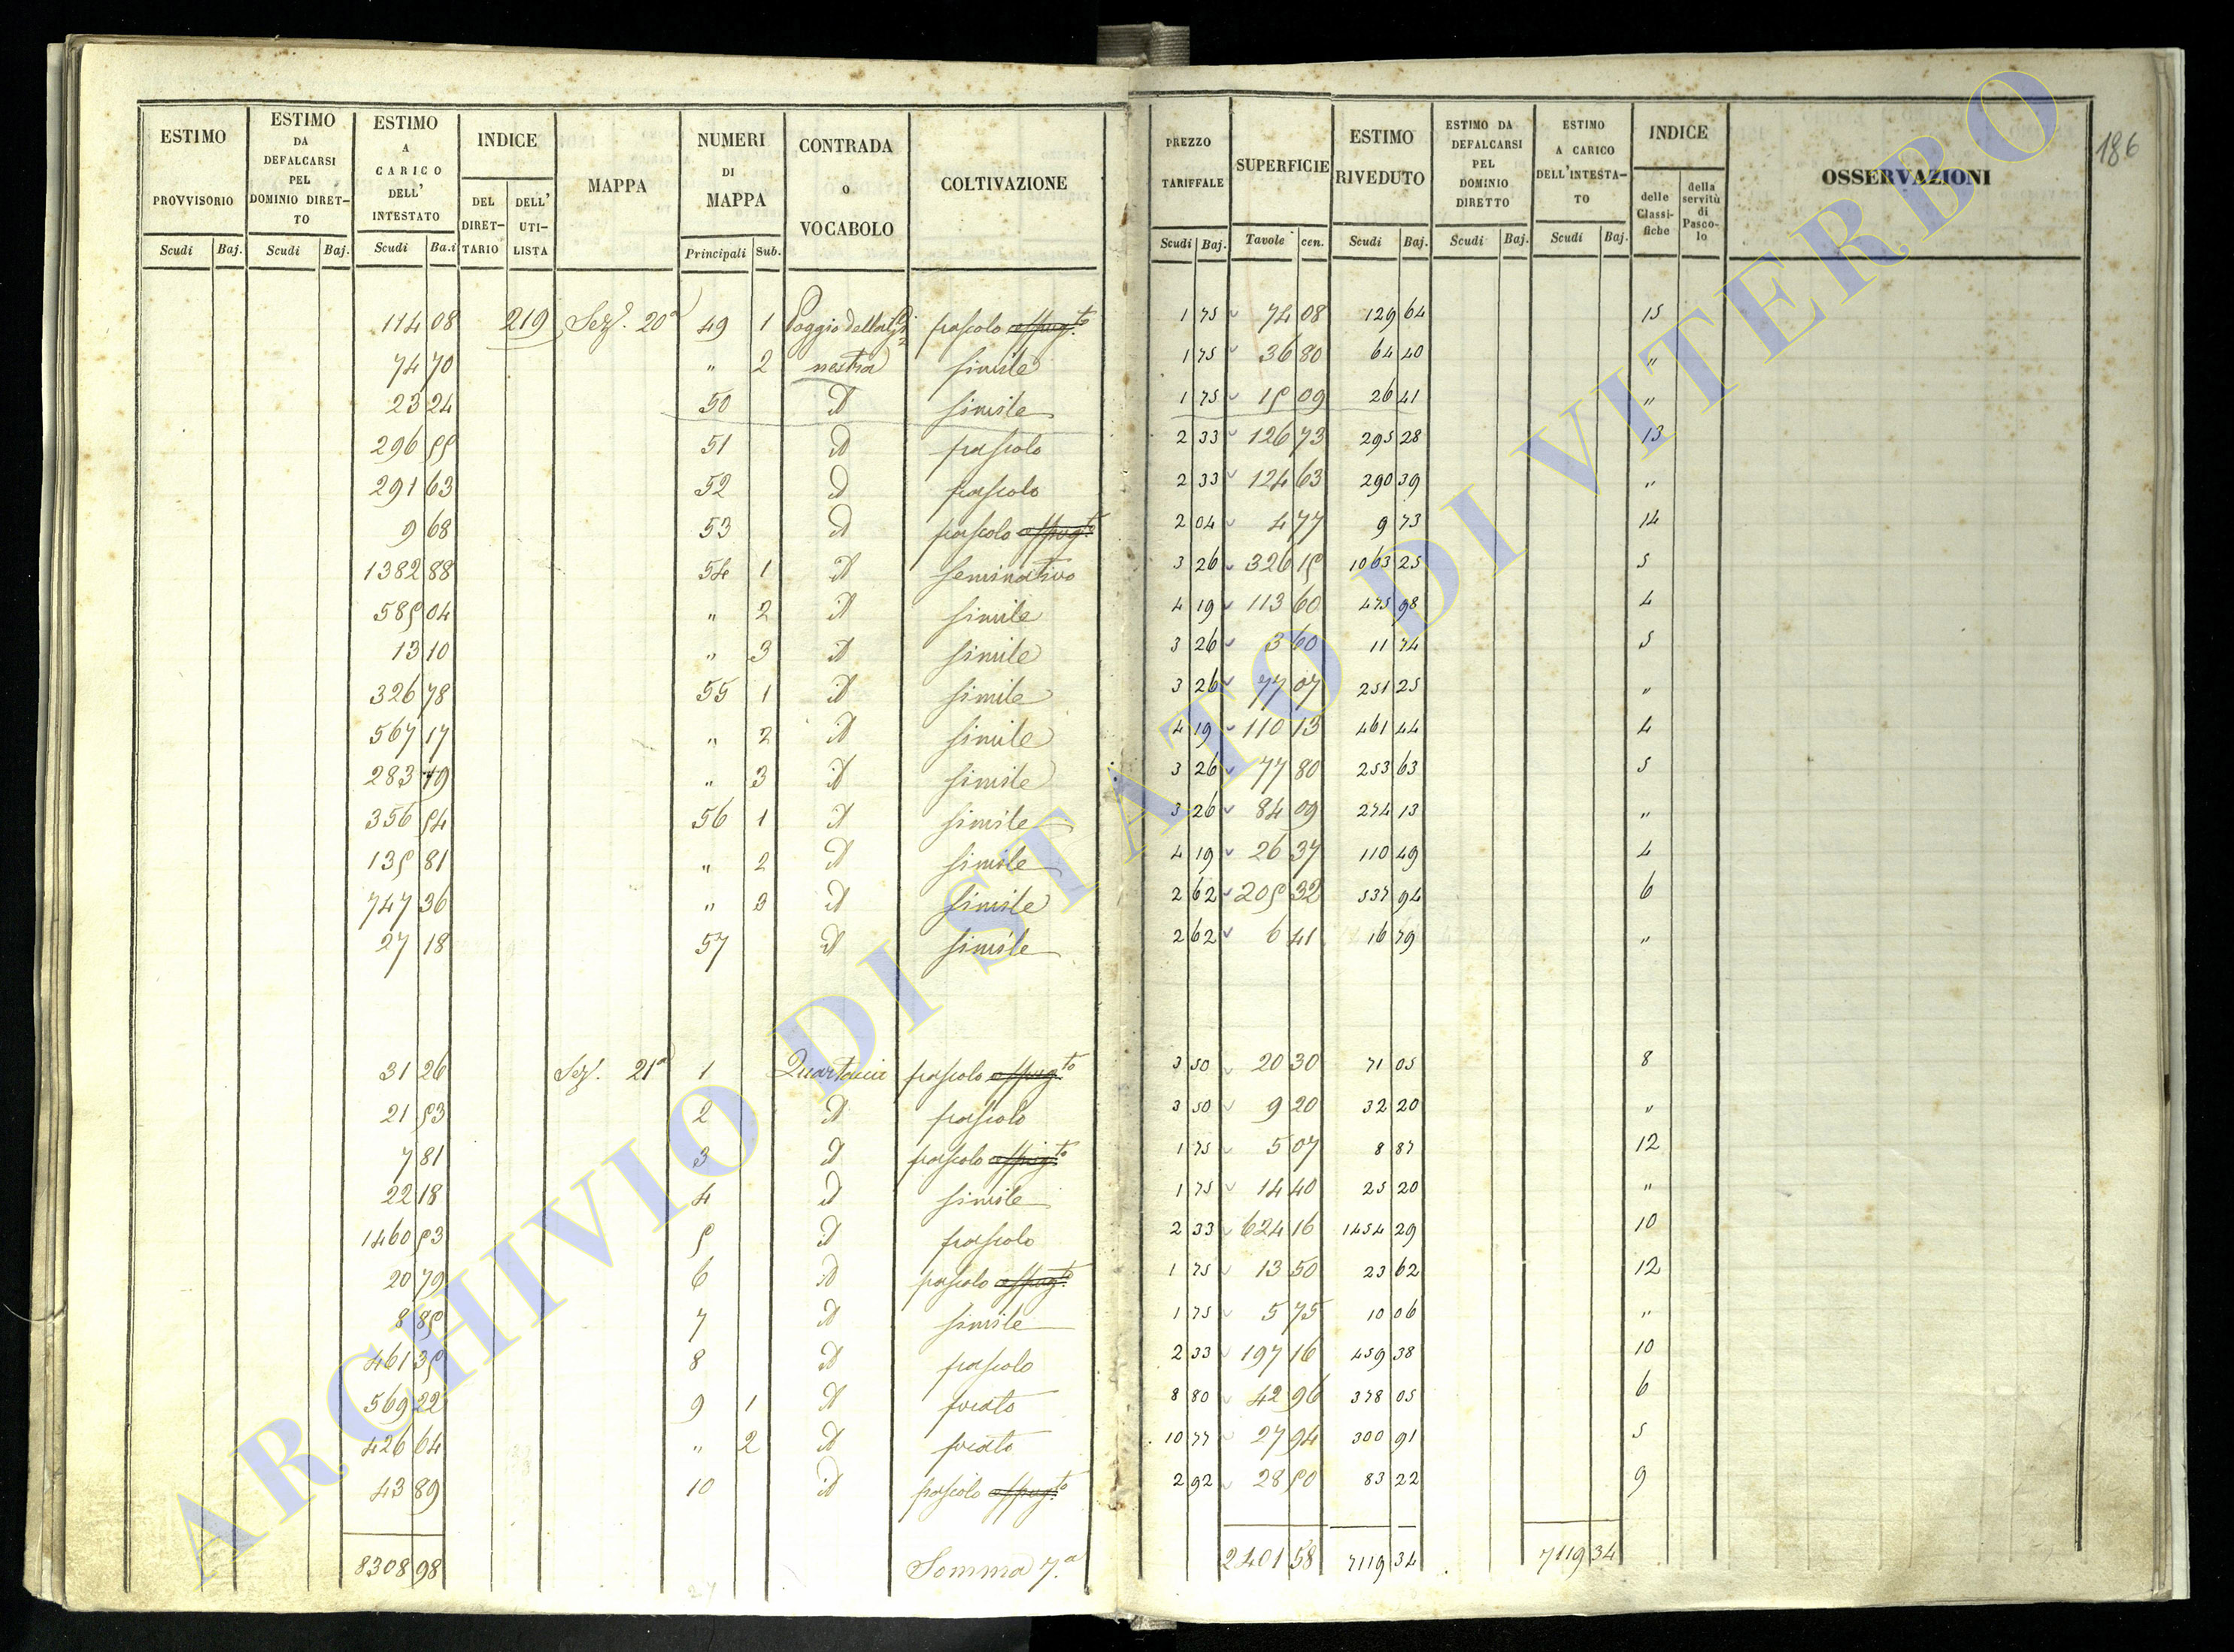 186
ESTIMO PROVVISORIO Scudi Baj.
ESTIMO DA DEFALCARSI PEL DOMINIO DIRETTO Scudi Baj.
ESTIMO A CARICO DELL' INTESTATO Scudi Ba.i
INDICE DEL DIRETTARIO DELL' UTILISTA
MAPPA
NUMERI DI MAPPA Principali Sub.
CONTRADA o VOCABOLO
COLTIVAZIONE
PREZZO TARIFFALE Scudi Baj.
SUPERFICIE Tavole cen.
ESTIMO RIVEDUTO Scudi Baj.
ESTIMO DA DEFALCARSI PEL DOMINIO DIRETTO Scudi Baj.
ESTIMO A CARICO DELL'INTESTATO Scudi Baj.
INDICE delle Classifiche della servitù di Pascolo
OSSERVAZIONI
114 08 219 Sez. 20a 49 1 Poggio della Gi pascolo 1 75 74 08 129 64 15
74 70 " 2 nestra simile 1 75 36 80 64 40 "
23 24 50 id simile 1 75 15 09 26 41 "
296 55 51 id pascolo 2 33 126 73 295 28 13
291 63 52 id pascolo 2 33 124 63 290 39 "
9 68 53 id pascolo 2 04 4 77 9 73 14
1382 88 54 1 id seminativo 3 26 326 15 1063 25 5
585 04 " 2 id simile 4 19 113 60 475 98 4
13 10 " 3 id simile 3 26 3 60 11 74 5
326 78 55 1 id simile 3 26 77 07 251 25 "
567 17 " 2 id simile 4 19 110 13 461 44 4
283 79 " 3 id simile 3 26 77 80 253 63 5
356 54 56 1 id simile 3 26 84 09 274 13 "
135 81 " 2 id simile 4 19 26 37 110 49 4
747 36 " 3 id simile 2 62 205 32 537 94 6
27 18 57 id simile 2 62 6 41 16 79 "
31 26 Sez. 21a 1 Quartaccia pascolo 3 50 20 30 71 05 8
21 53 2 id pascolo 3 50 9 20 32 20 "
7 81 3 id pascolo 1 75 5 07 8 87 12
22 18 4 id simile 1 75 14 40 25 20 "
1460 53 5 id pascolo 2 33 624 16 1454 29 10
20 79 6 id pascolo 1 75 13 50 23 62 12
8 85 7 id simile 1 75 5 75 10 06 "
461 35 8 id pascolo 2 33 197 16 459 38 10
569 22 9 1 id prato 8 80 42 96 378 05 6
426 64 " 2 id prato 10 77 27 94 300 91 5
43 89 10 id pascolo 2 92 28 50 83 22 9
8308 98 Somma 7.a 2401 58 7119 34 7119 34
ARCHIVIO DI STATO DI VITERBO